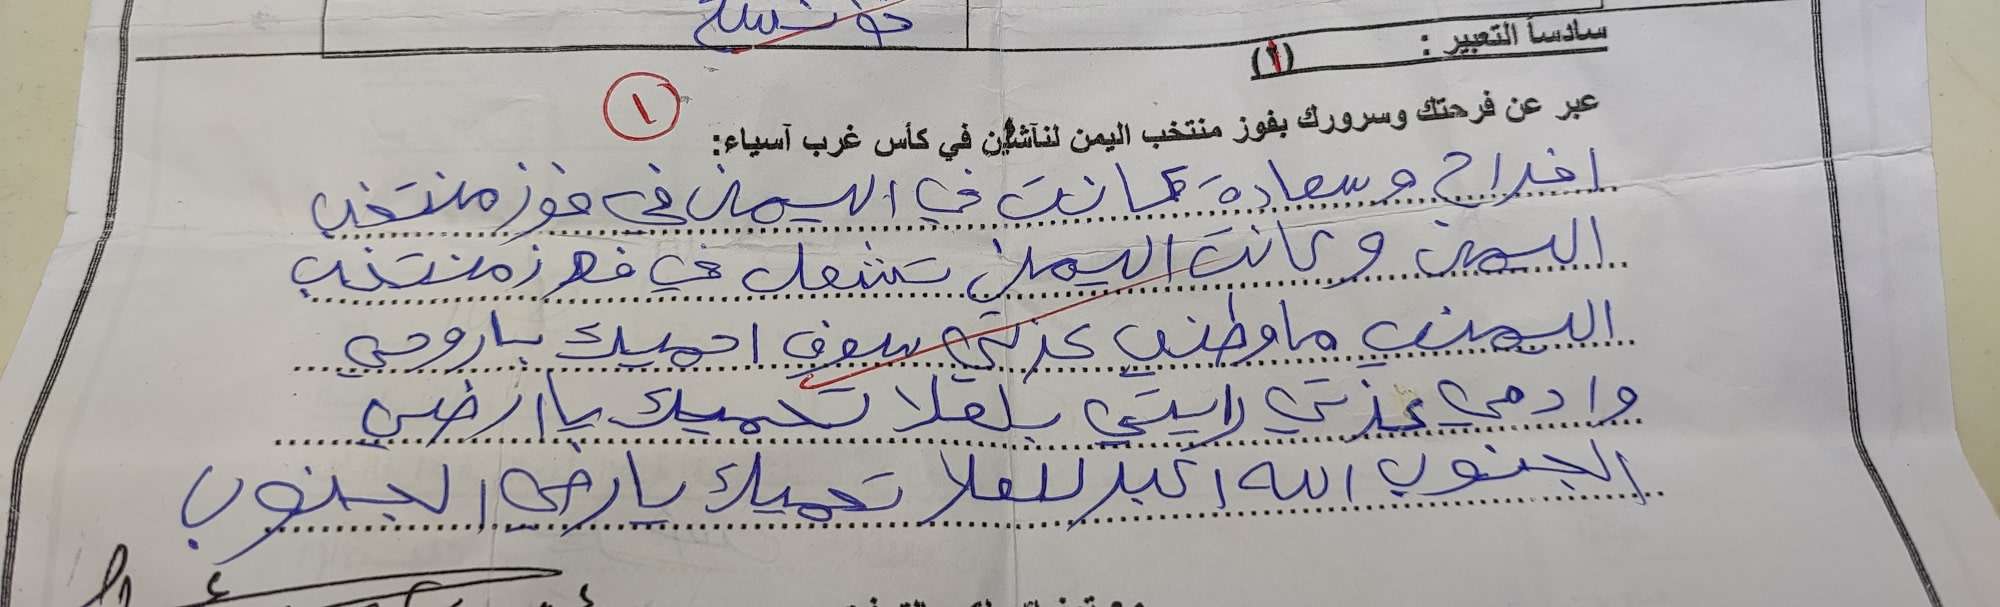 تونسية
سادساً التعبير : (١)
١
عبر عن فرحتك وسرورك بفوز منتخب اليمن لنآشئن في كأس غرب آسياء:
افراح وسعادة كانت في اليمن في فوز منتخب
اليمن وكانت اليمن تشعل في فوز منتخب
اليمنب ماوطني عزتي سوف احميك باروحي
وادمي عزتي رايتي بلعلا تحميك ياارضي
الجنوب الله اكبر للعلا تحميك يارضي الجنوب